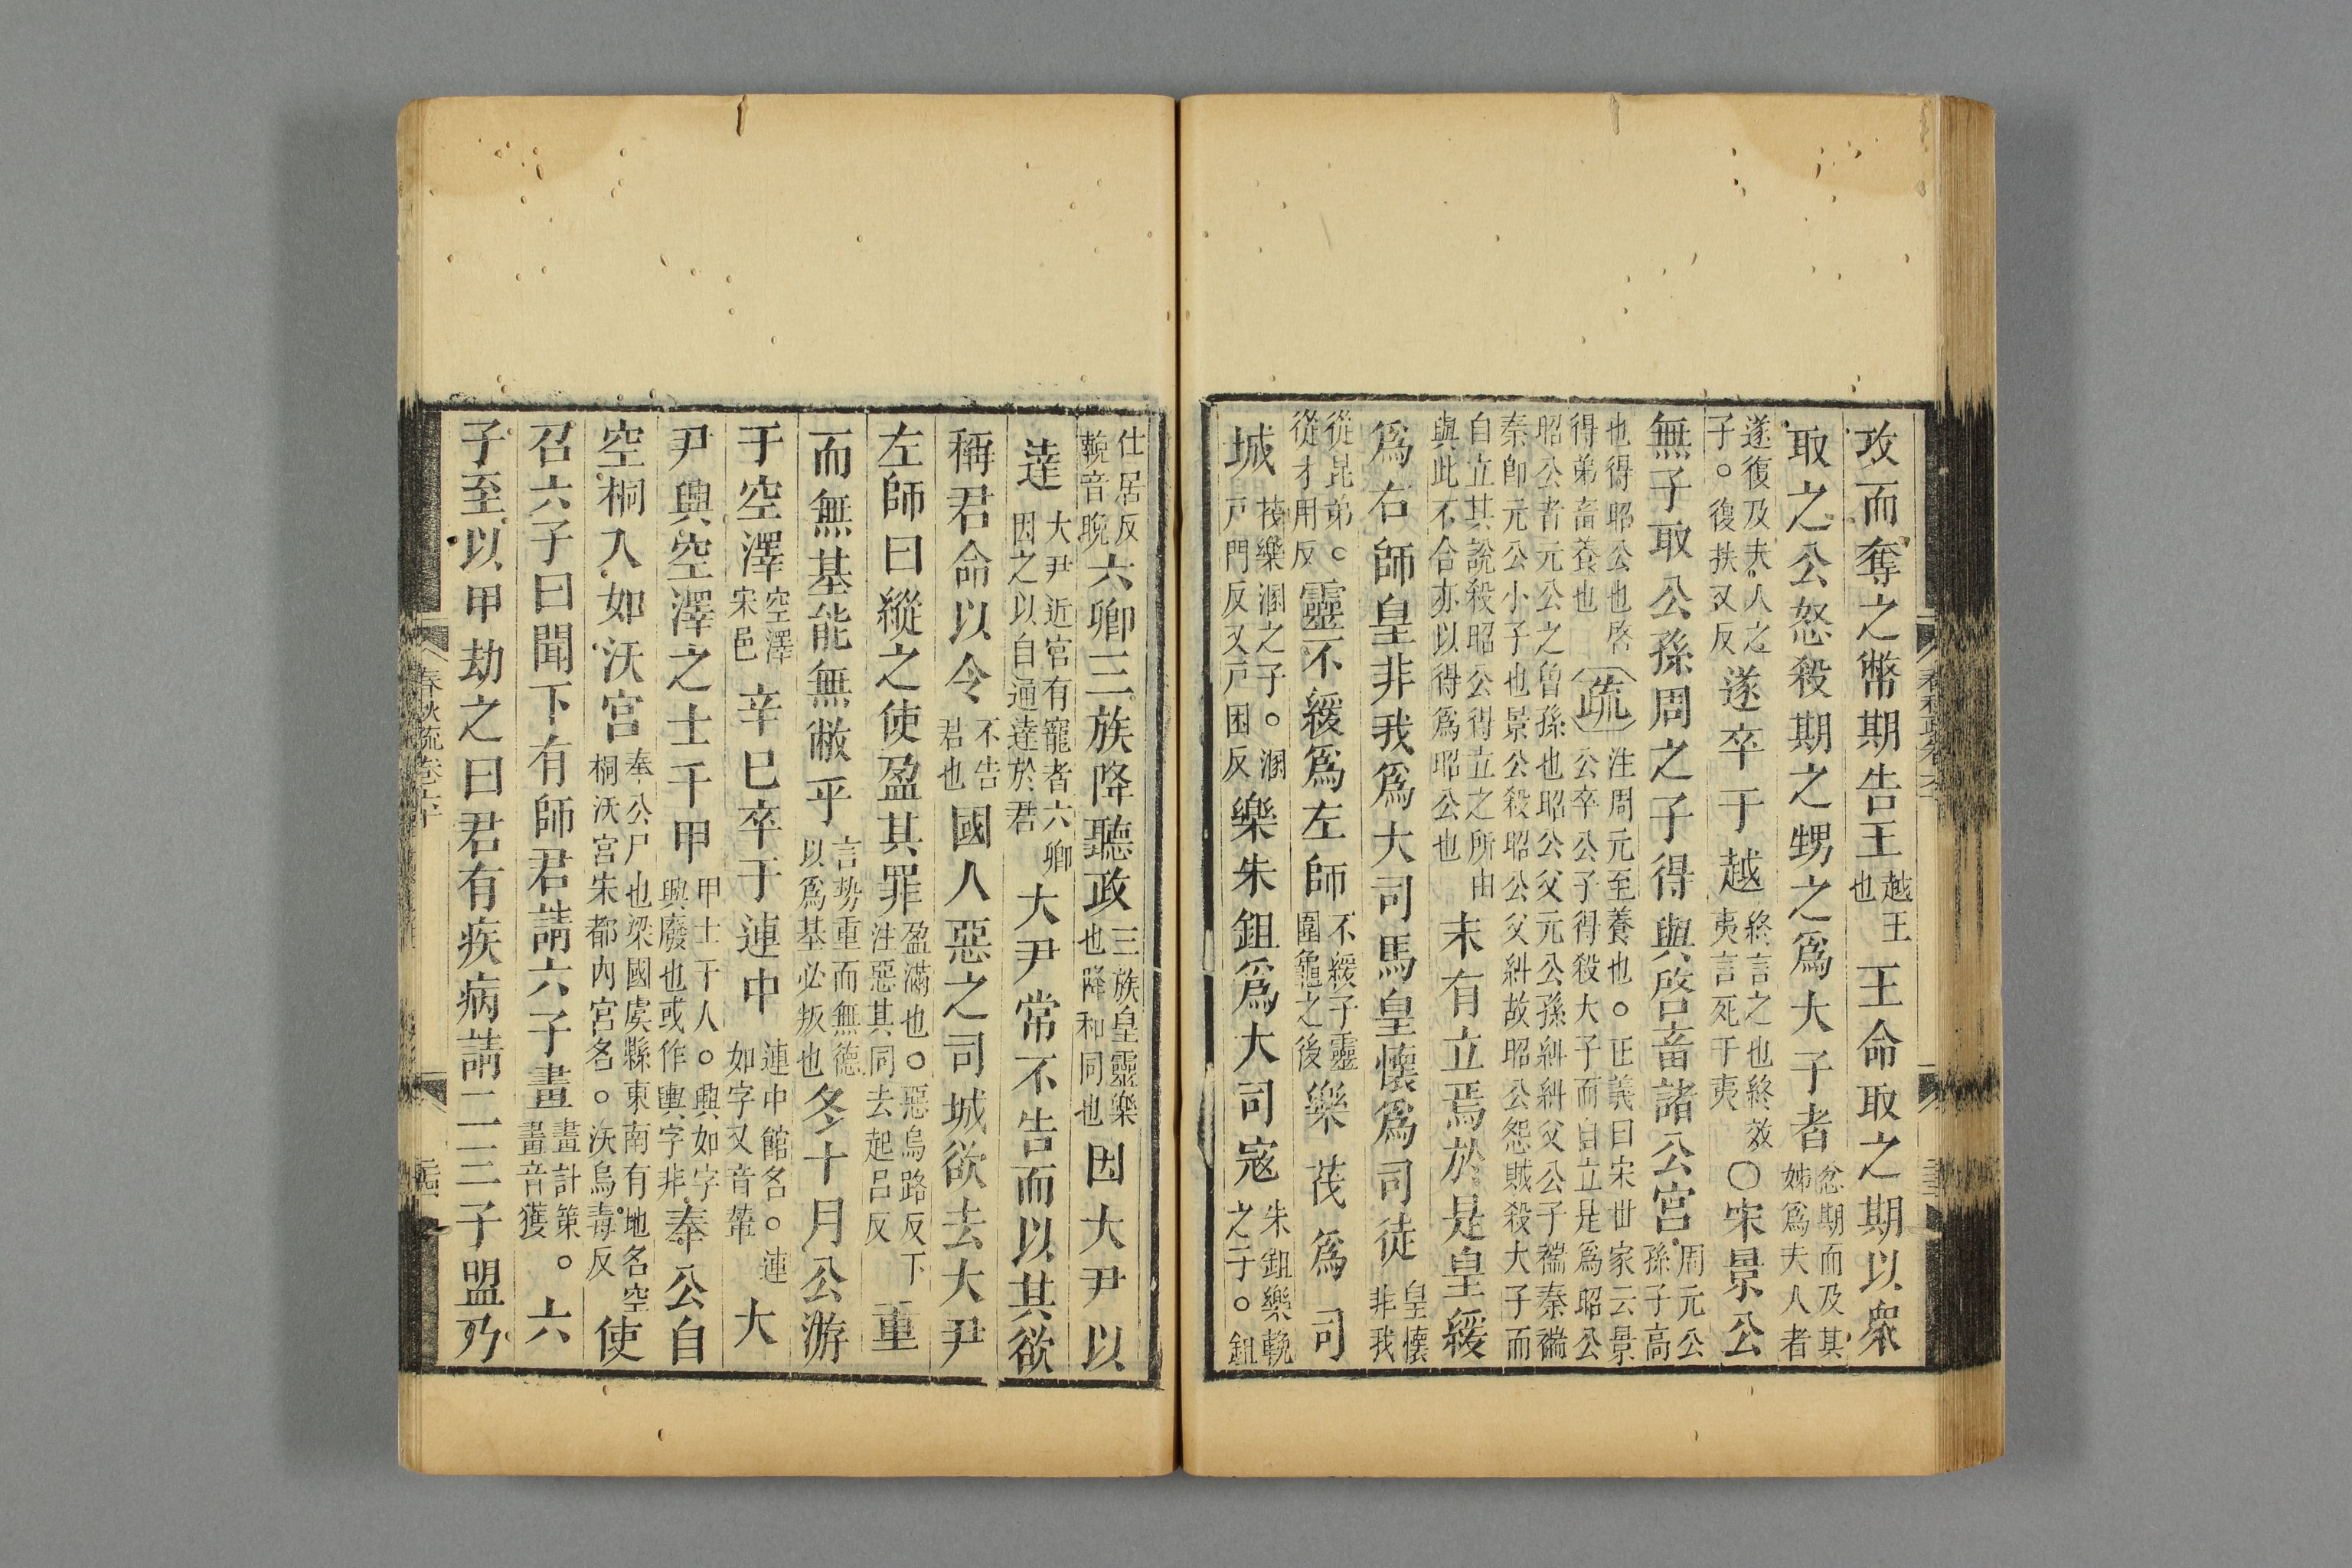 攻而奪之幣期告王越王也王命取之期以衆
取之公怒殺期之甥之爲大子者忿期而及其姊爲夫人者
遂復及夫人之子。復扶又反遂卒于越終言之也終效夷言死于夷〇宋景公
無子取公孫周之子得與啓畜諸公宮周元公孫子高
也得昭公也啓得弟畜養也疏注周元至養也。正義曰宋世家云景公卒公子得殺大子而自立是爲昭公
昭公者元公之曾孫也昭公父元公孫糾糾父公子褍秦褍秦卽元公小子也景公殺昭公父糾故昭公怨賊殺大子而
自立其說殺昭公得立之所由與此不合亦以得爲昭公也未有立焉於是皇緩
爲右師皇非我爲大司馬皇懷爲司徒皇懷非我
從昆弟。從才用反靈不緩爲左師不緩子靈圍龜之後樂茷爲司
城茷樂溷之子。溷戸門反又戸困反樂朱鉏爲大司寇朱鉏樂輓之子。鉏
仕居反輓音晚六卿三族降聽政三族皇靈樂也降和同也因大尹以
達大尹近官有寵者六卿因之以自通達於君大尹常不告而以其欲
稱君命以令不告君也國人惡之司城欲去大尹
左師曰縱之使盈其罪盈滿也。惡烏路反下注惡其同去起呂反重
而無基能無敝乎言勢重而無德以爲基必敗也冬十月公游
于空澤空澤宋邑辛巳卒于連中連中館名。連如字又音輦大
尹興空澤之士千甲甲士千人。興如字興廢也或作輿字非奉公自
空桐入如沃宮奉公尸也梁國虞縣東南有地名空桐沃宮宋都內宮名。沃烏毒反使
召六子曰聞下有師君請六子畫畫計策。畫音獲六
子至以甲劫之曰君有疾病請二三子盟乃